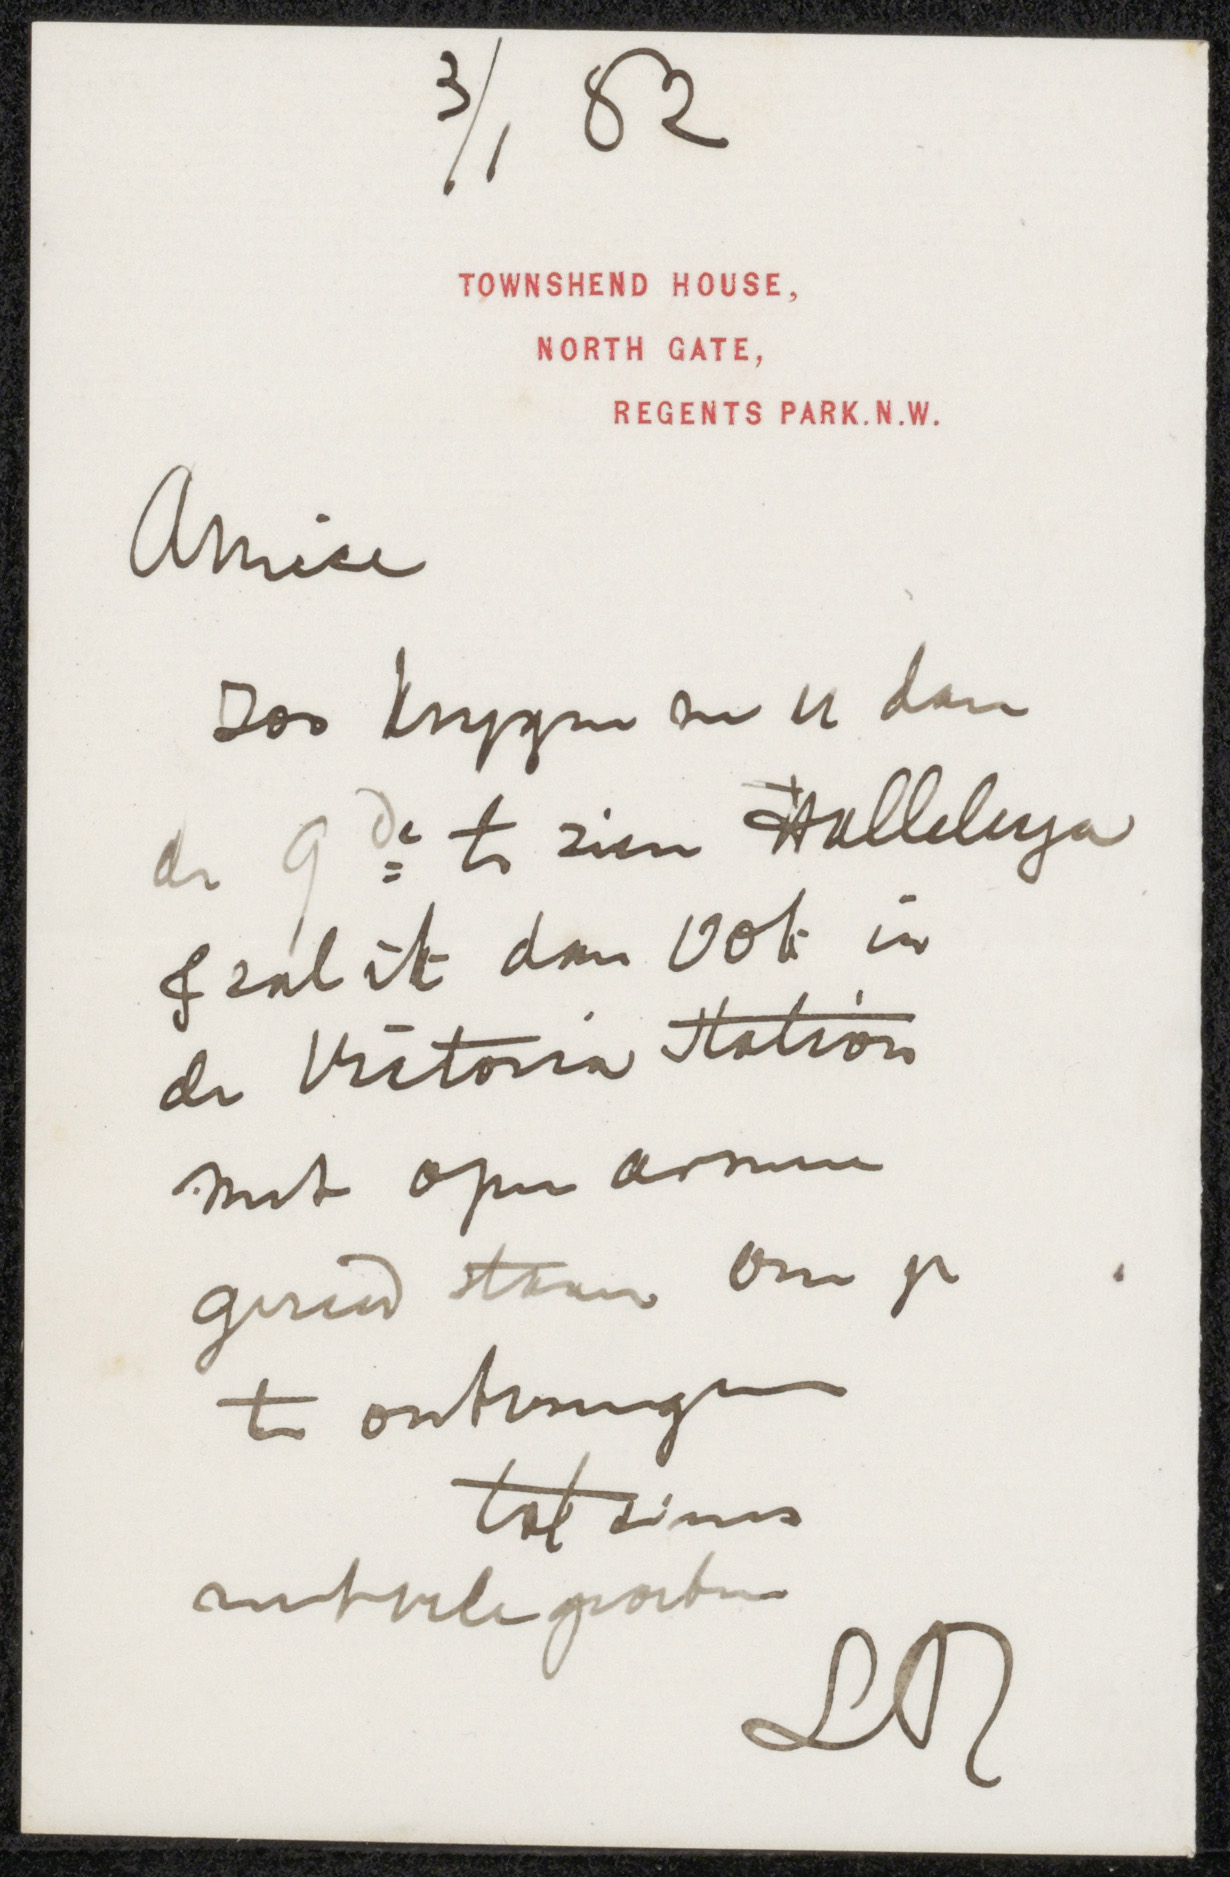 3/1 82
TOWNSHEND HOUSE,
NORTH GATE,
REGENTS PARK.N.W.
Amice
Zoo krygen we u dan
de 9de te zien Halleluya
& zal ik dan ook in
de Victoria Station
met open armen
gereed staan om je
te ontvangen
tot ziens
met vele groeten